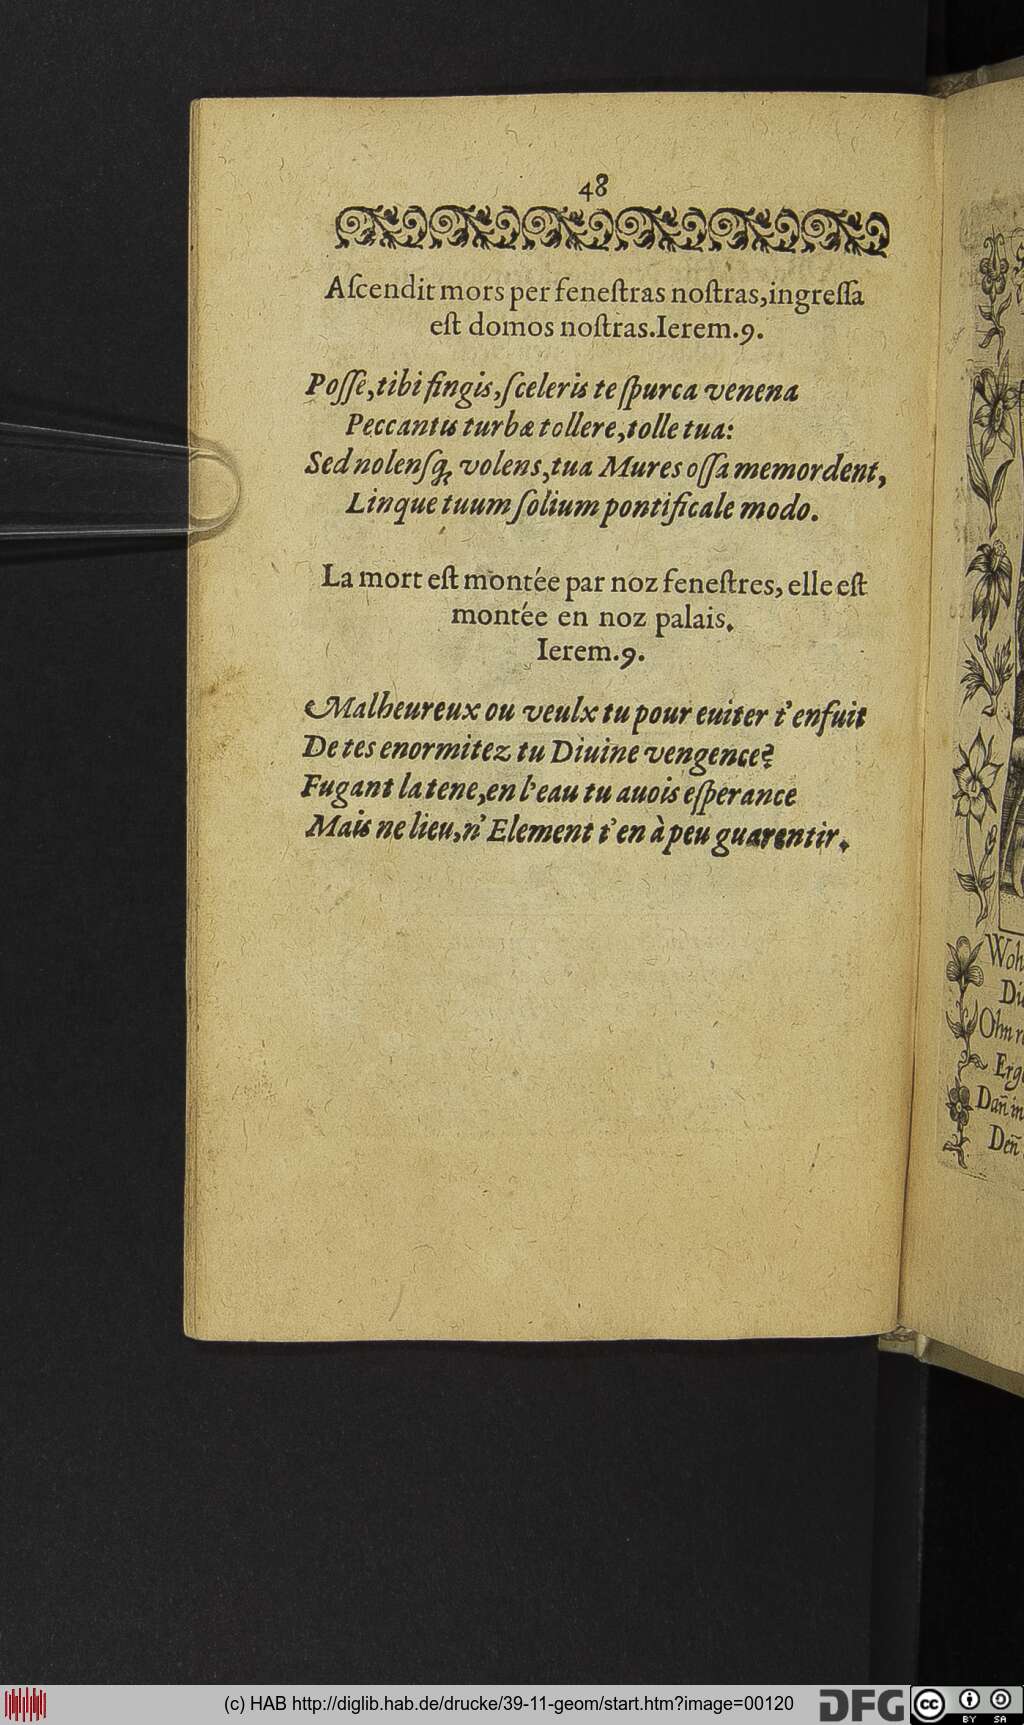 48
Aſcendit mors per feneſtras noſtras, ingreſſa
eſt domos noſtras. Ierem. 9.
Poſſe, tibi fingis, ſceleris te ſpurca venena
Peccantis turbæ tollere, tolle tua:
Sed nolenſq; volens, tua Mures oſſa memordent,
Linque tuum ſolium pontificale modo.
La mort eſt montée par noz feneſtres, elle eſt
montée en noz palais.
Ierem. 9.
Malheureux ou veulx tu pour euiter t'enfuit
De tes enormitez tu Diuine vengence?
Fugant la tene, en l'eau tu auois eſperance
Mais ne lieu, n'Element t'en à peu guarentir.
Woh
Di
Ohn
Erg
Dañ in
Deñ
(c) HAB http://diglib.hab.de/drucke/39-11-geom/start.htm?image=00120
DFG
cc
BY SA